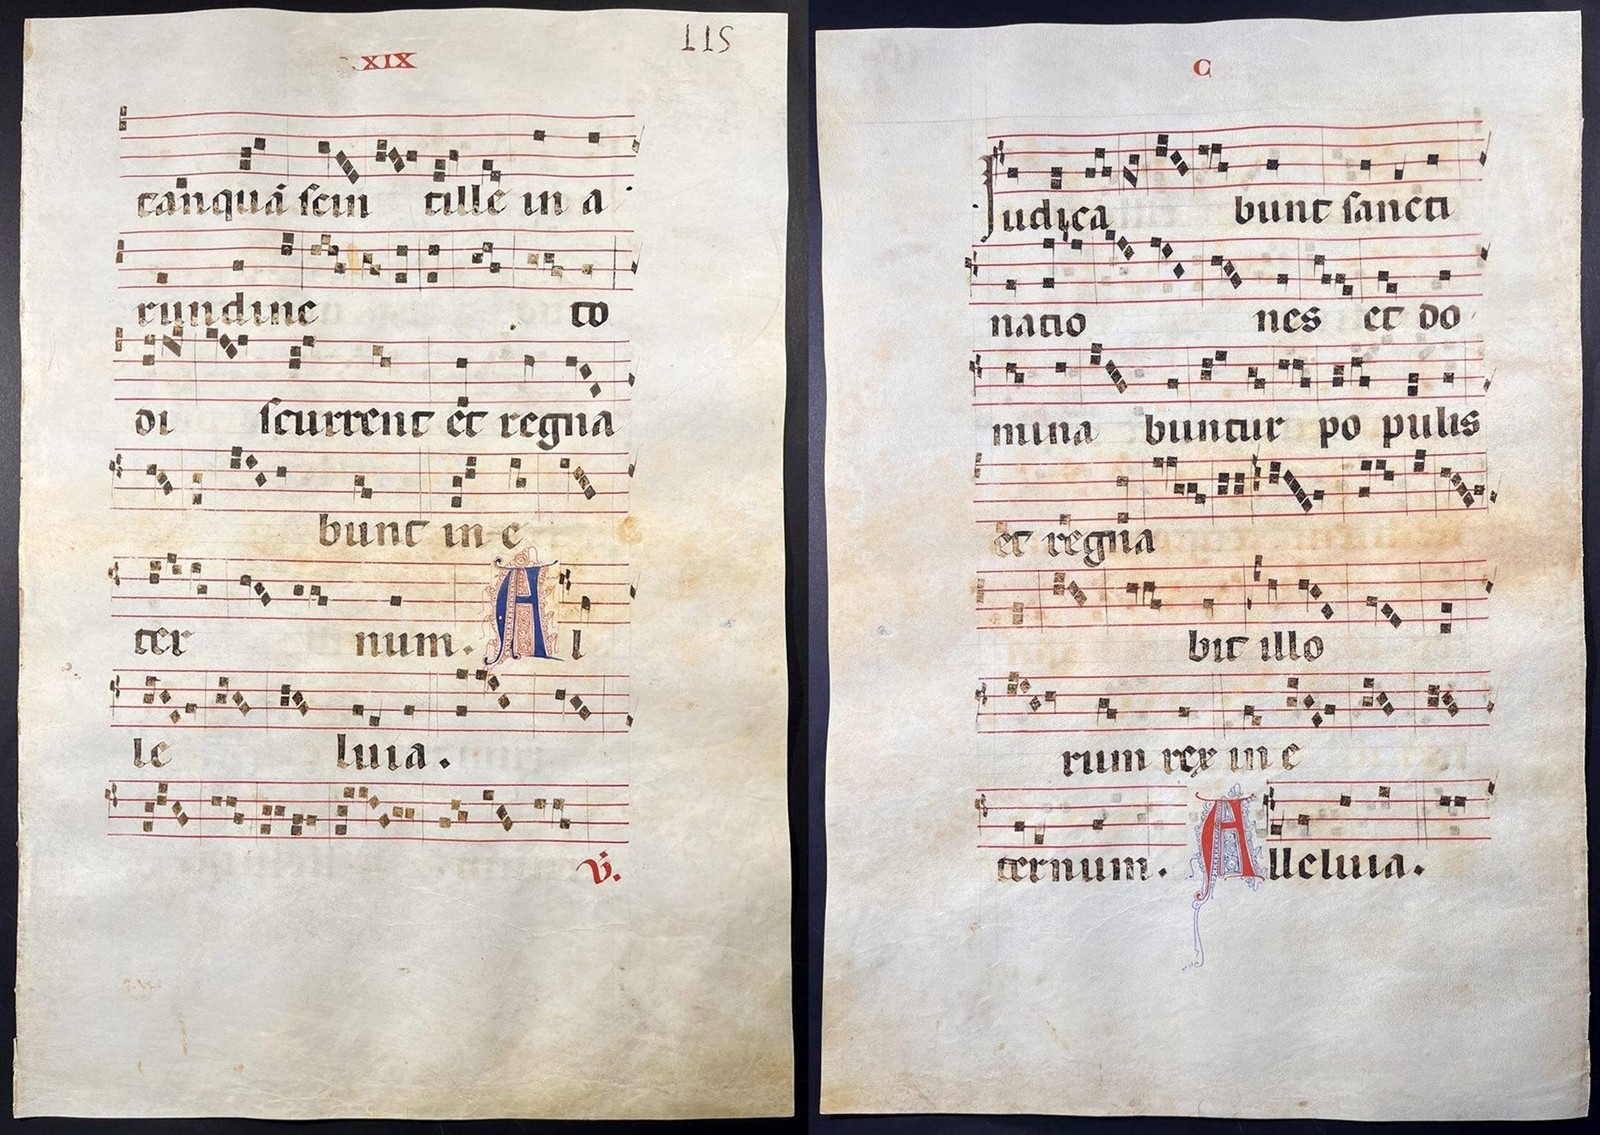 .XIX
LLS
tanquā scin tille in a
rundine to
di scurrent et regna
bunt in e
ter num. Al
le luia.
v̇.
C
Judica bunt sancti
natio nes et do
mina buntur po pulis
et regna
bit illo
rum rex in e
ternum. Alleluia.